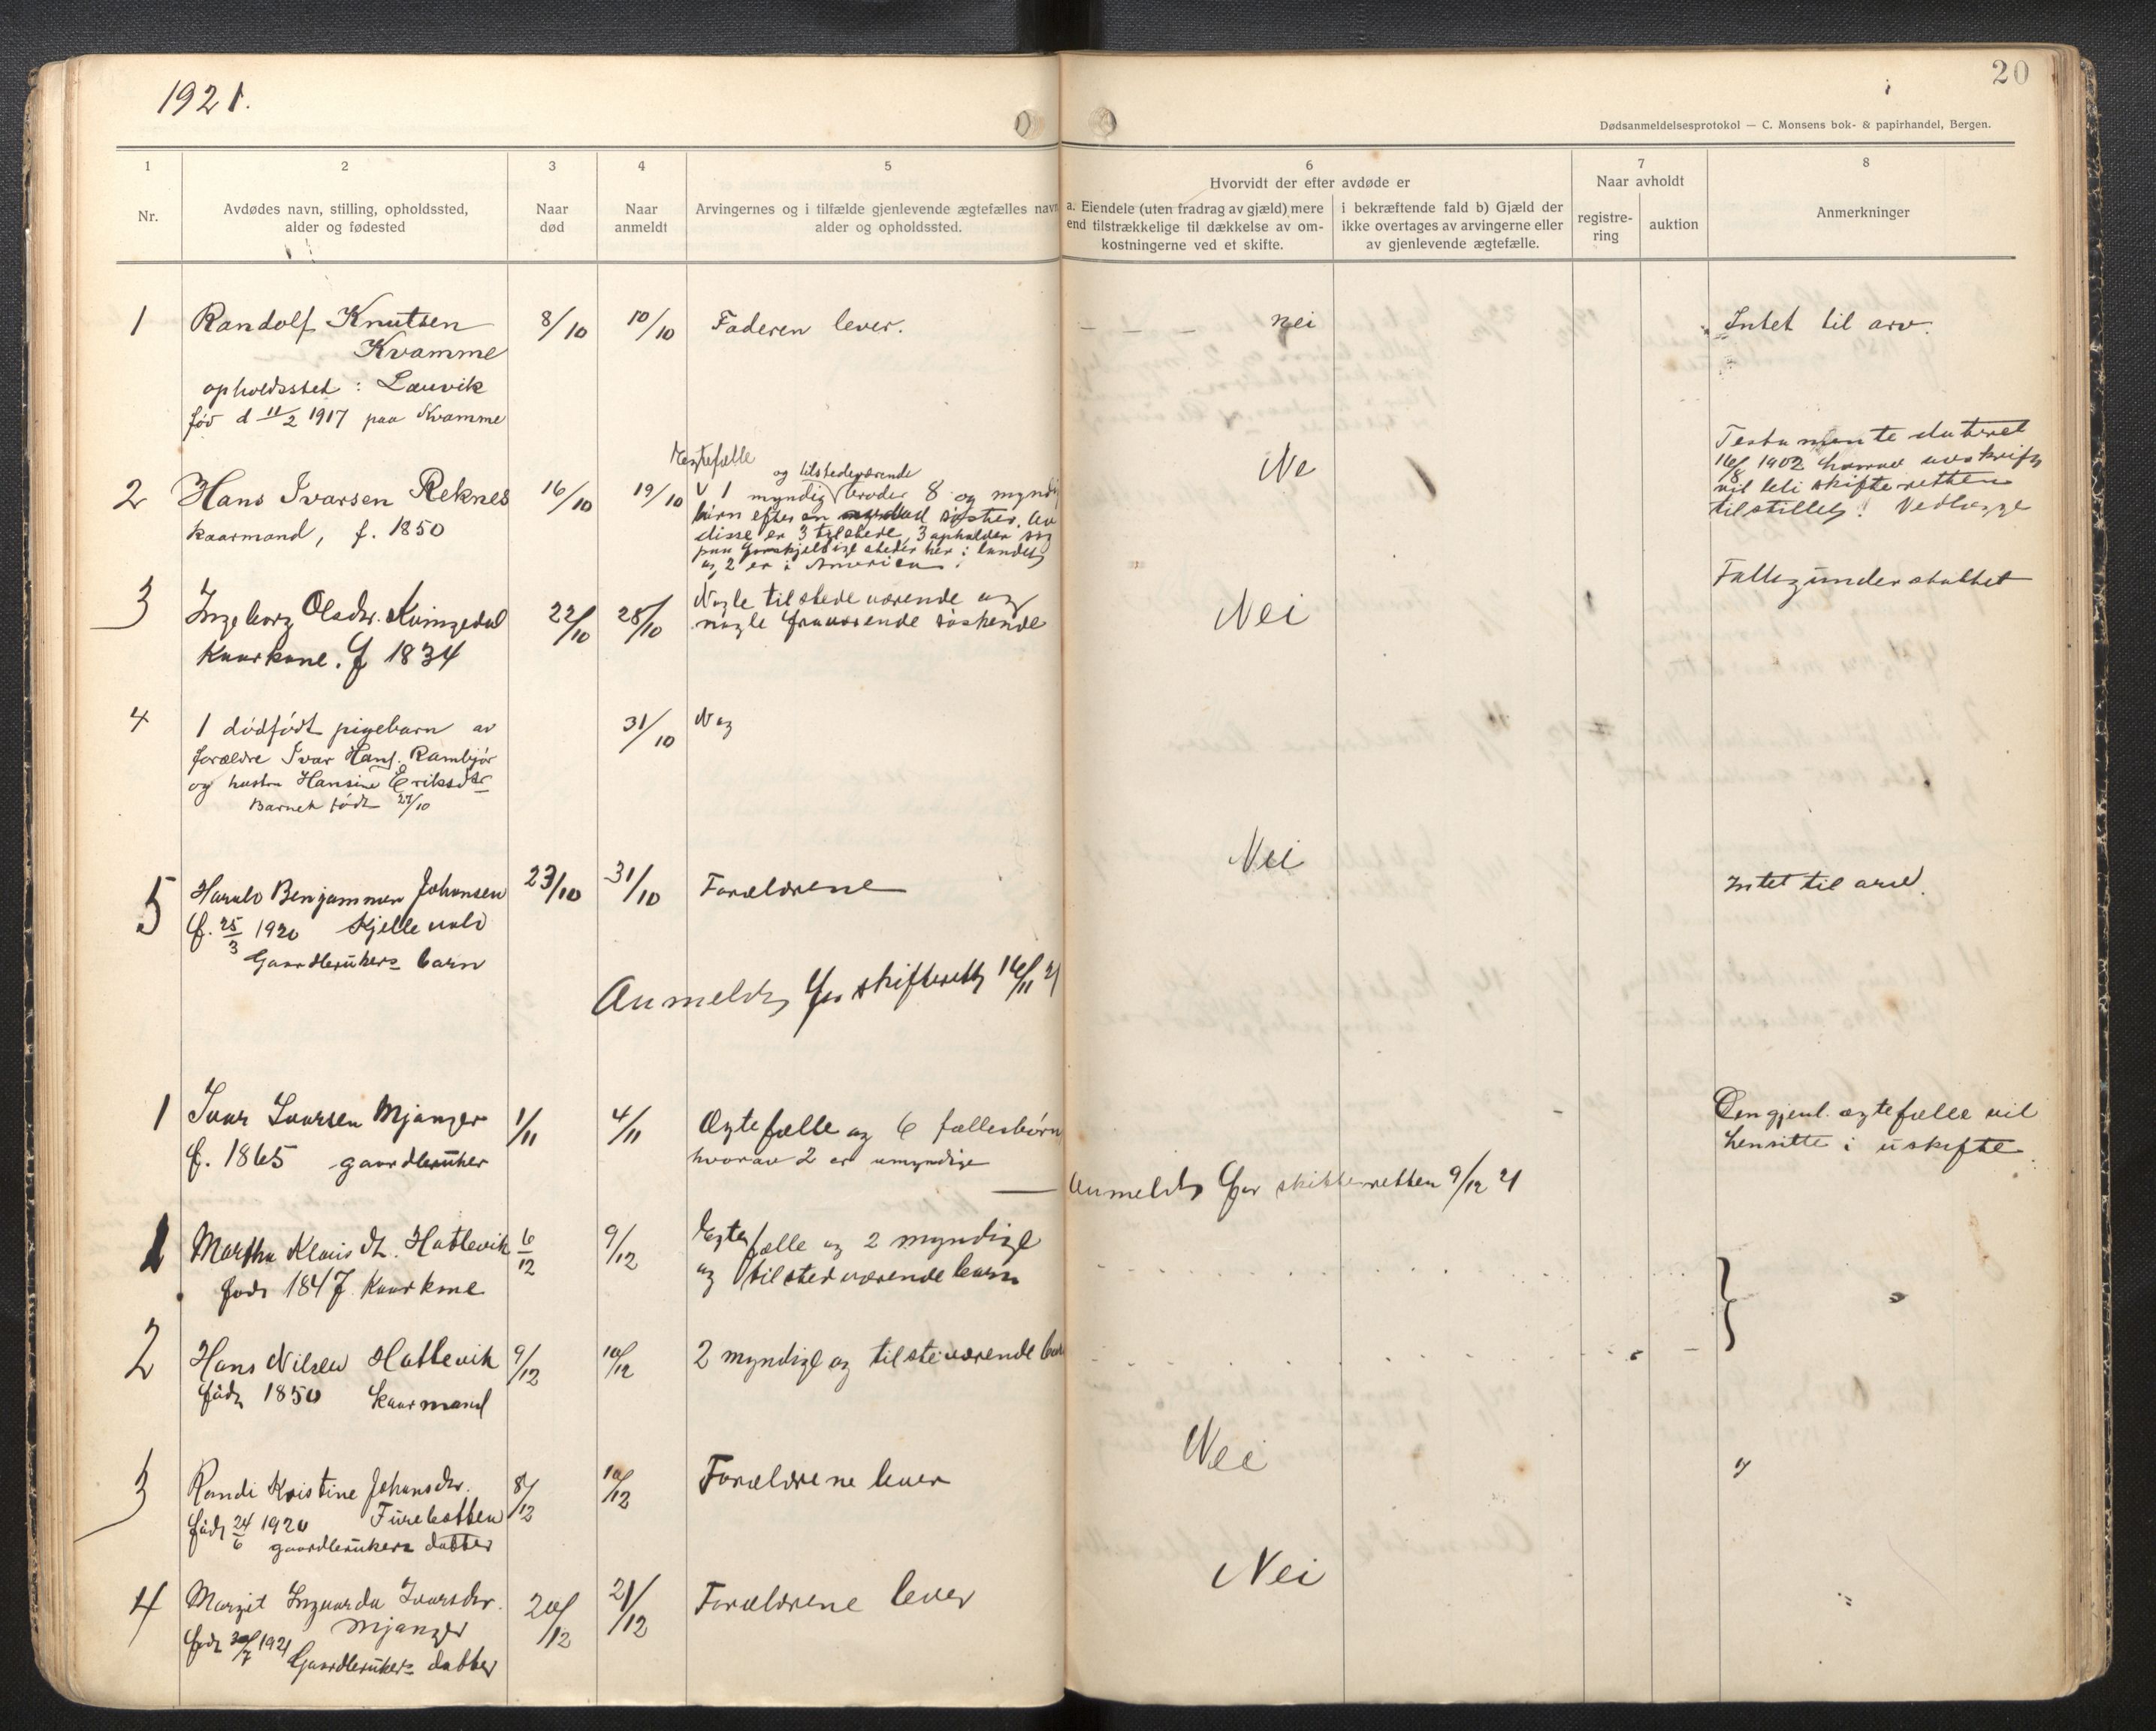 1921.
20
Dødsanmeldelsesprotokol — C. Monsens bok- & papirhandel, Bergen.
1
2
3
4
5
6
7
8
Nr.
Avdødes navn, stilling, opholdssted,
alder og fødested
Naar
død
Naar
anmeldt
Arvingernes og i tilfælde gjenlevende ægtefælles navn
alder og opholdssted.
Hvorvidt der efter avdøde er
a. Eiendele (uten fradrag av gjæld) mere
end tilstrækkelige til dækkelse av om-
kostningerne ved et skifte.
i bekræftende fald b) Gjæld der
ikke overtages av arvingerne eller
av gjenlevende ægtefælle.
Naar avholdt
registre-
ring
auktion
Anmerkninger
1 Randolf Knutsen 8/10 10/10 Faderen lever. — — — nei Intet til arv.
Kvamme
opholdssted : Lauvik
fød d 11/2 1917 paa Kvamme
2 Hans Ivarsen Reknes 16/10 19/10
kaarmand, f. 1850
Ægtefælle
og tilstedeværende
1 myndig broder 8 og myndi
børn efter en søster. av
disse er 3 tilstede, 3 opholder sig
paa forskjellige steder her i landet
og 2 er i Amerika.
Ne
Testamente dateret
16/8 1902 hvorav avskrift
vil bli skifteretten
tilstillet! Vedlægge
3 Ingeborg Olsdtr. Kvingedal 22/10 28/10
Kaarkone. f 1834
Nogle tilstedeværende og
nogle fraværende søskende
Nei
Fattigunderstøttet
4 1 dødfødt pigebarn av 31/10
forældre Ivar Hans. Rambjør
og hustru Hansine Eriksdtr
Barnet født 27/10
5 Harald Benjammen Johansen 23/10 31/10 Forældrene Nei Intet til arv.
f. 25/3 1920 Kjellevold
Gaardbrukers barn
Anmeldt for skifterett 16/11 21
1 Ivar Ivarsen Mjanger 1/11 4/11 Ægtefælle og 6 fællesbørn
f. 1865 gaardbruker hvorav 2 er umyndige
Den gjenl. ægtefælle vil
hensitte i uskifte
— Anmeldt for skifteretten 9/12 21
1 Martha Klausdt. Hatlevik 6/12 9/12 Ægtefælle og 2 myndige
født 1847 Kaarkone og tilstedværende barn
2 Hans Nilsen Hatlevik 9/12 10/12 2 myndige og tilsteværende barn
født 1850 kaarmand
3 Randi Kristine Johansdtr. 8/12 10/12 Forældrene lever Nei "
født 24/6 1920 Furebotten
gaardbrukers datter
4 Margit Ingvarda Ivarsdtr. 20/12 21/12 Forældrene lever Nei "
Mjanger
født 30/7 1921 Gaardbrukers datter